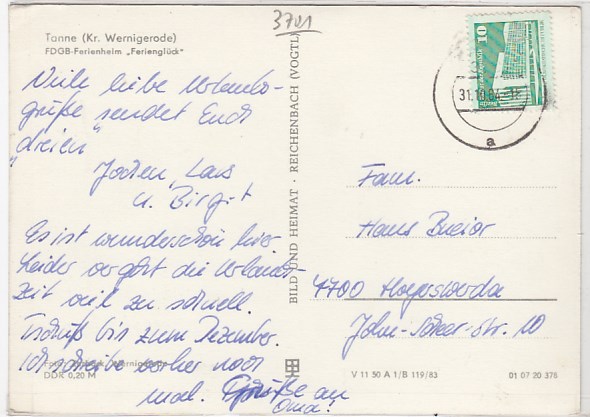 3701
Tanne (Kr. Wernigerode)
FDGB-Ferienheim „Ferienglück"
Viele liebe Urlaubs-
grüße sendet Euch
„dreien"
Jochen, Lars
u. Birgit
Es ist wunderschön hier
Leider vergeht die Urlaubs-
Zeit viel zu schnell.
Tschüß bis zum Dezember.
Ich schreibe vorher noch
mal. Grüße an
Oma!
Wernigerode
DDR 0,20 M
BILD UND HEIMAT · REICHENBACH (VOGTL)
10
DDR
31.10.84
a
Fam.
Hans
7700 Hoyerswerda
John-Scheer-Str. 10
V 11 50 A 1/B 119/83
01 07 20 378